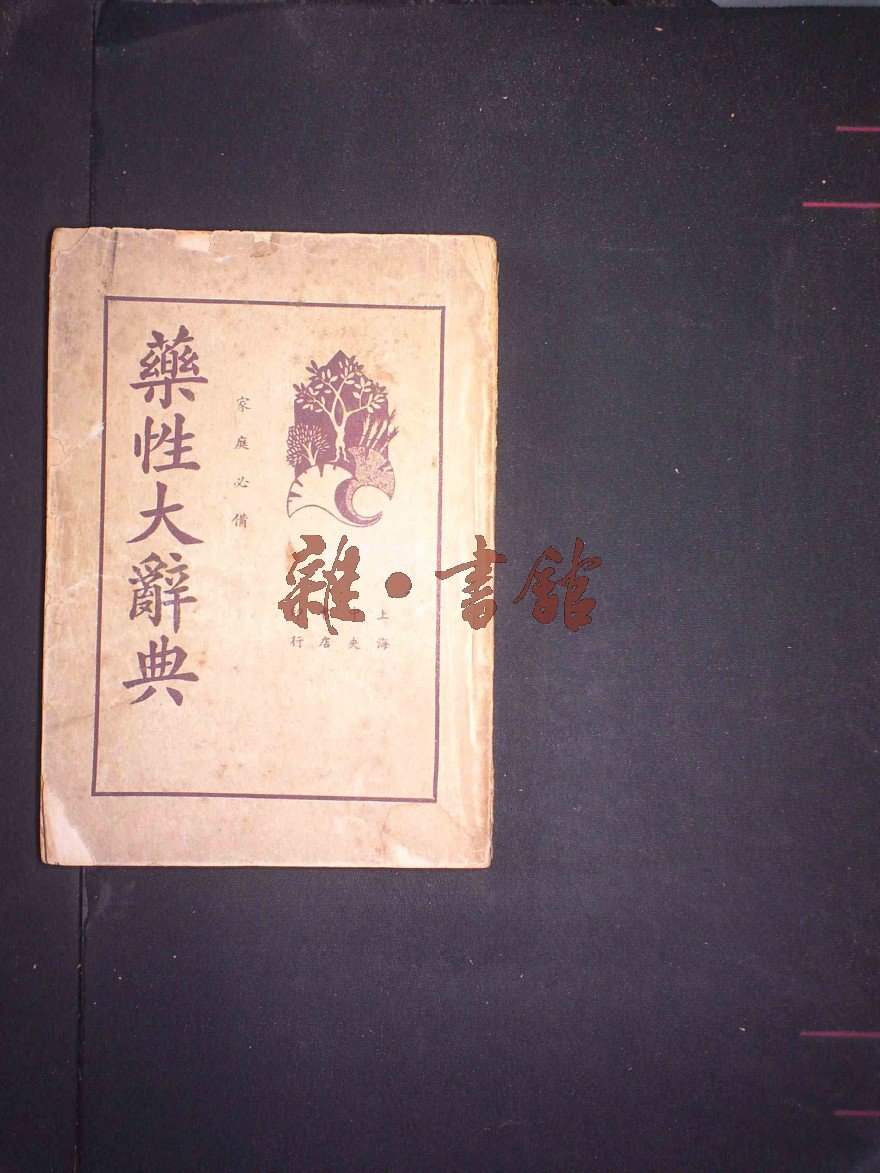 上海央店行
家庭必備
藥性大辭典
雜·書館